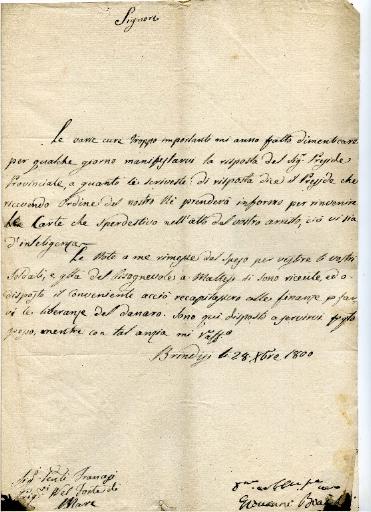 Signore
Le varie cure troppo importanti mi anno fatto dimenticare
per qualche giorno manifestarvi la risposta del Sig. Preside
Provinciale, a quanto le scriveste: di risposta dice il Preside che
ricevendo ordine del nostro Rè prenderà informi per rinvenire
le Carte che sperdestivo nell'atto del vostro arresto, ciò vi sia
d'inteligenza.
Le Note a me rimesse del speso per vestire li vostri
Soldati, e del bisognevole a Maltesi si sono ricevute, ed o
disposto il conveniente acciò recapitassero alle finanze p. far
vi le liberanze del danaro. Sono qui disposto a servirvi
peso, mentre con tal anzia mi raff.o
Brindisi li 28 Xbre 1800
del Forte di
Mare
Giovanni